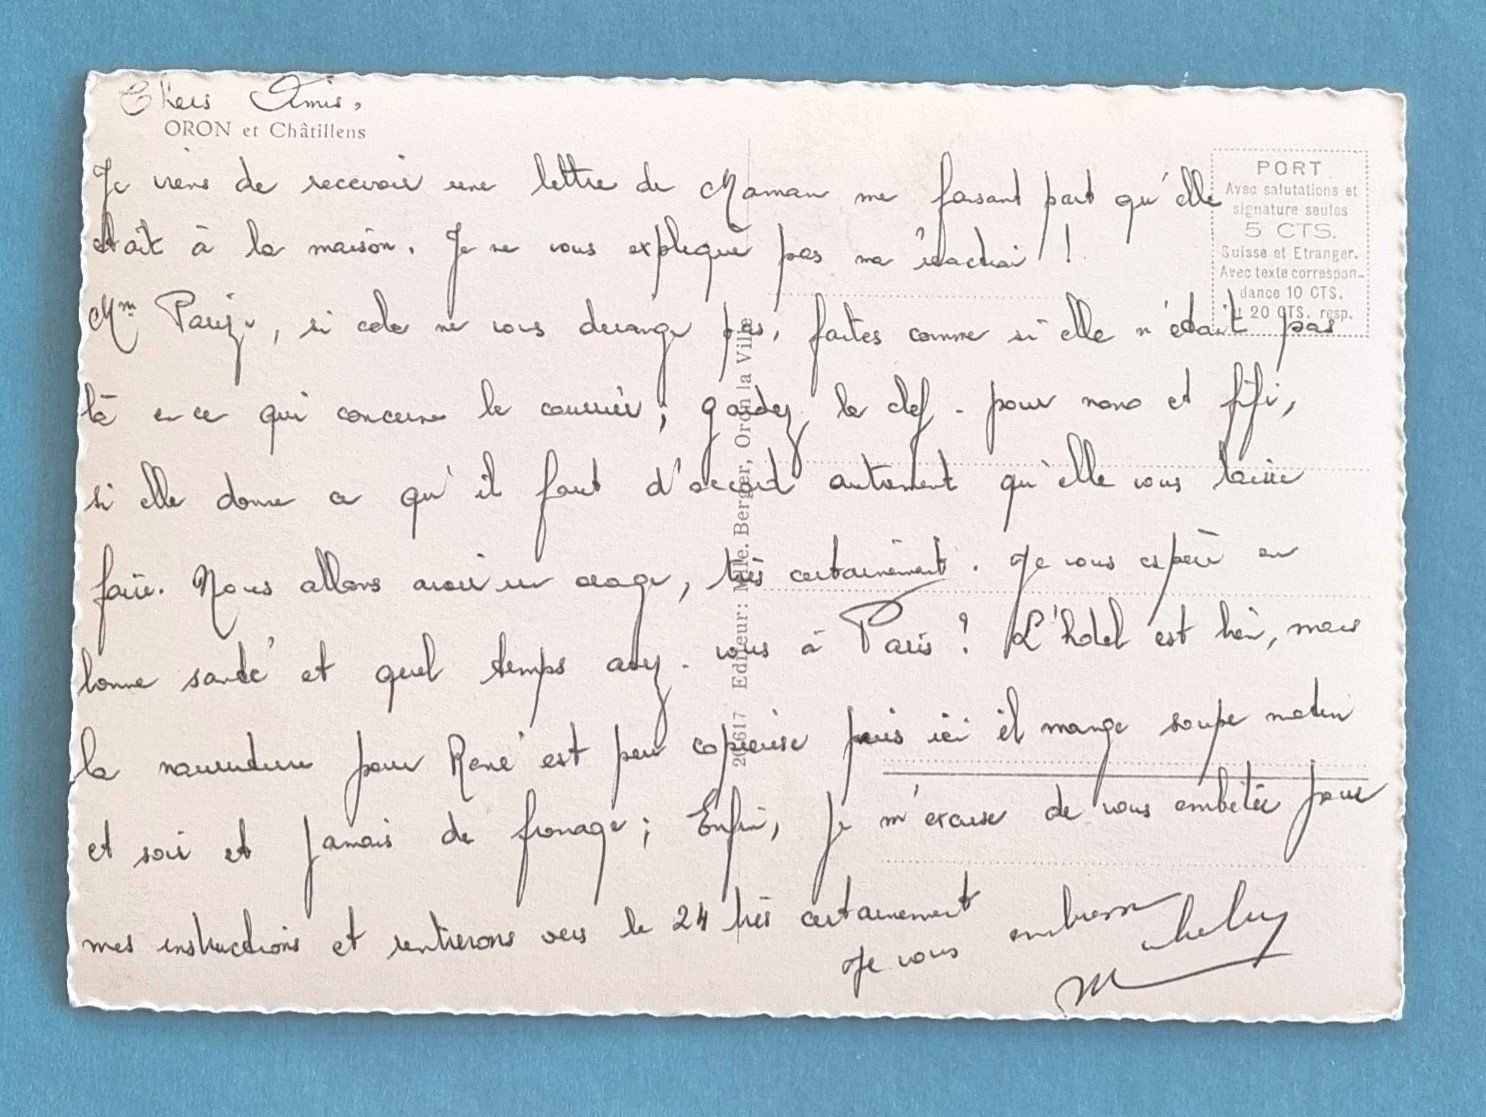 Chers Amis,
ORON et Châtillens
Je viens de recevoir une lettre de Maman me faisant part qu'elle
était à la maison. Je ne vous explique pas ma réaction !
Mme, si cela ne vous derange pas, faites comme si elle n'était pas
là en ce qui concerne le courrier, gardez la clef - pour nono et fifi,
si elle donne ce qu'il faut d'accord autrement qu'elle vous laisse
faire. Nous allons avoir un orage, très certainement. Je vous espère en
bonne santé et quel temps avez-vous à Paris ? L'hotel est bien, mais
la nourriture pour René est peu copieuse puis ici il mange soupe matin
et soir et jamais de fromage ; Enfin, je m'excuse de vous embêter pour
mes instructions et rentrerons vers le 24 très certainement
Je vous embrasse
PORT
Avec salutations et
signature seules
5 CTS.
Suisse et Etranger.
Avec texte correspon-
dance 10 CTS.
20 CTS. resp.
Editeur: Mlle. Berger, Oron la Ville